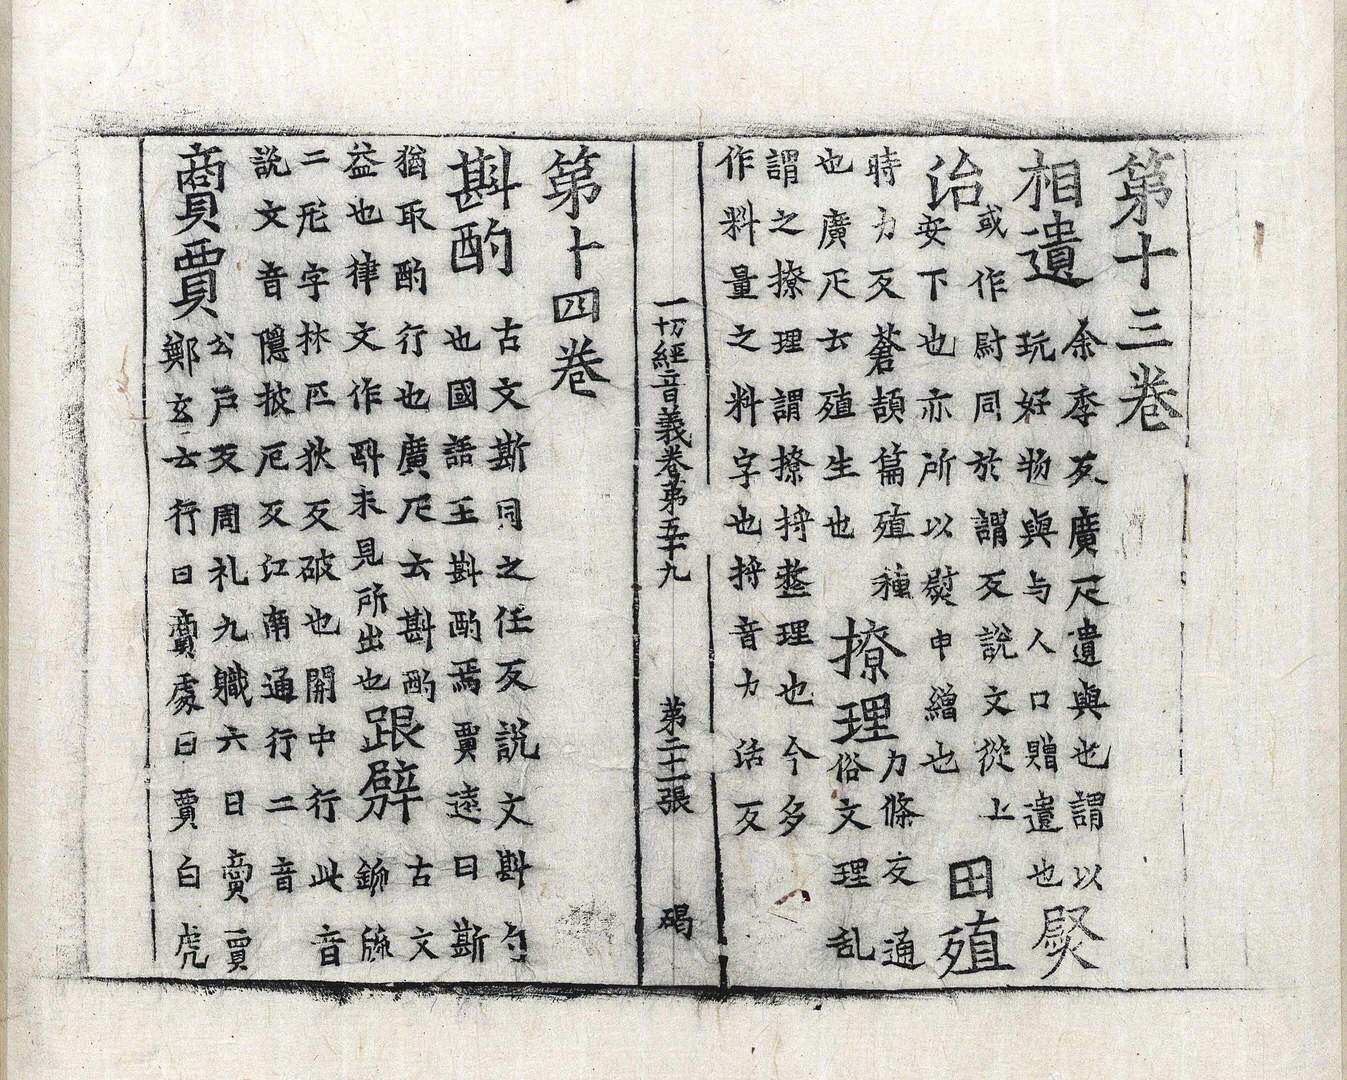 第十三卷
相遺
余季反廣疋遺與也謂以
玩好物與与人口贈遺也
熨
治
或作尉同於謂反說文從上
安下也亦所以熨申繒也
田殖
時力反蒼頡篇殖種
也廣疋云殖生也
撩理
力條反通
俗文理乱
謂之撩理謂撩捋整理也今多
作料量之料字也捋音力活反
一切經音義卷第五十九
第二十一張
碣
第十四卷
斟酌
古文斯同之任反說文斟勺
也國語王斟酌焉賈逵曰斯
猶取酌行也廣疋云斟酌
益也律文作㪺未見所出也
跟劈
古文
鈲𠂢
二形字林匹狄反破也關中行此音
說文音隱披厄反江南通行二音
賣賈
公戶反周礼九職六曰賣賈
鄭玄云行曰賣處曰賈白虎